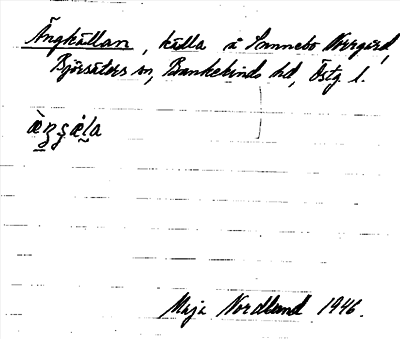 Ängkällan, källa å Sunnebo Norrgård,
Björsäters sn, Bankekinds hd, Östg. l.
æ̀ŋʂæ̀la
Maja Nordlund 1946.